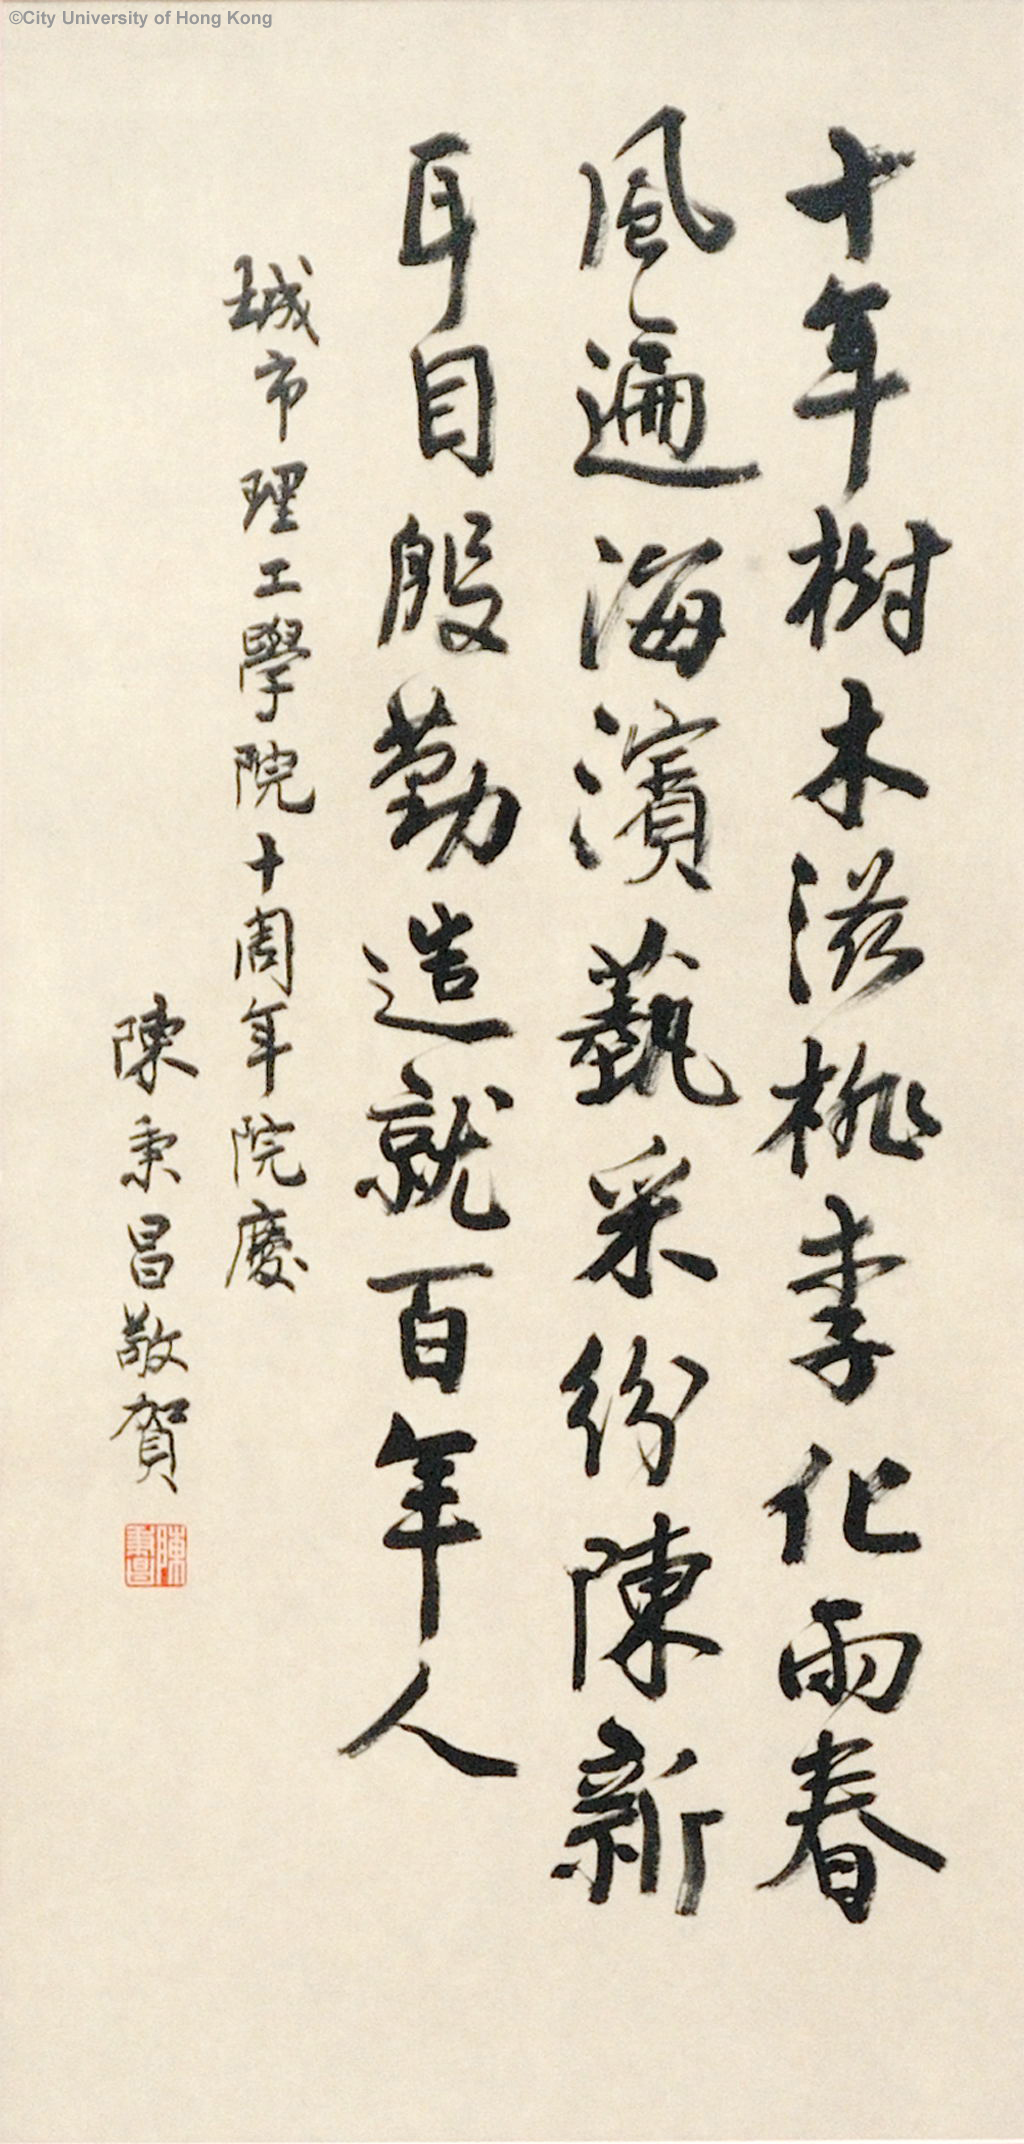 ©City University of Hong Kong
十年樹木滋桃李化雨春
風遍海濱藝采紛陳新
耳目殷勤造就百年人
城市理工學院十周年院慶
陳秉昌敬賀
陳秉昌